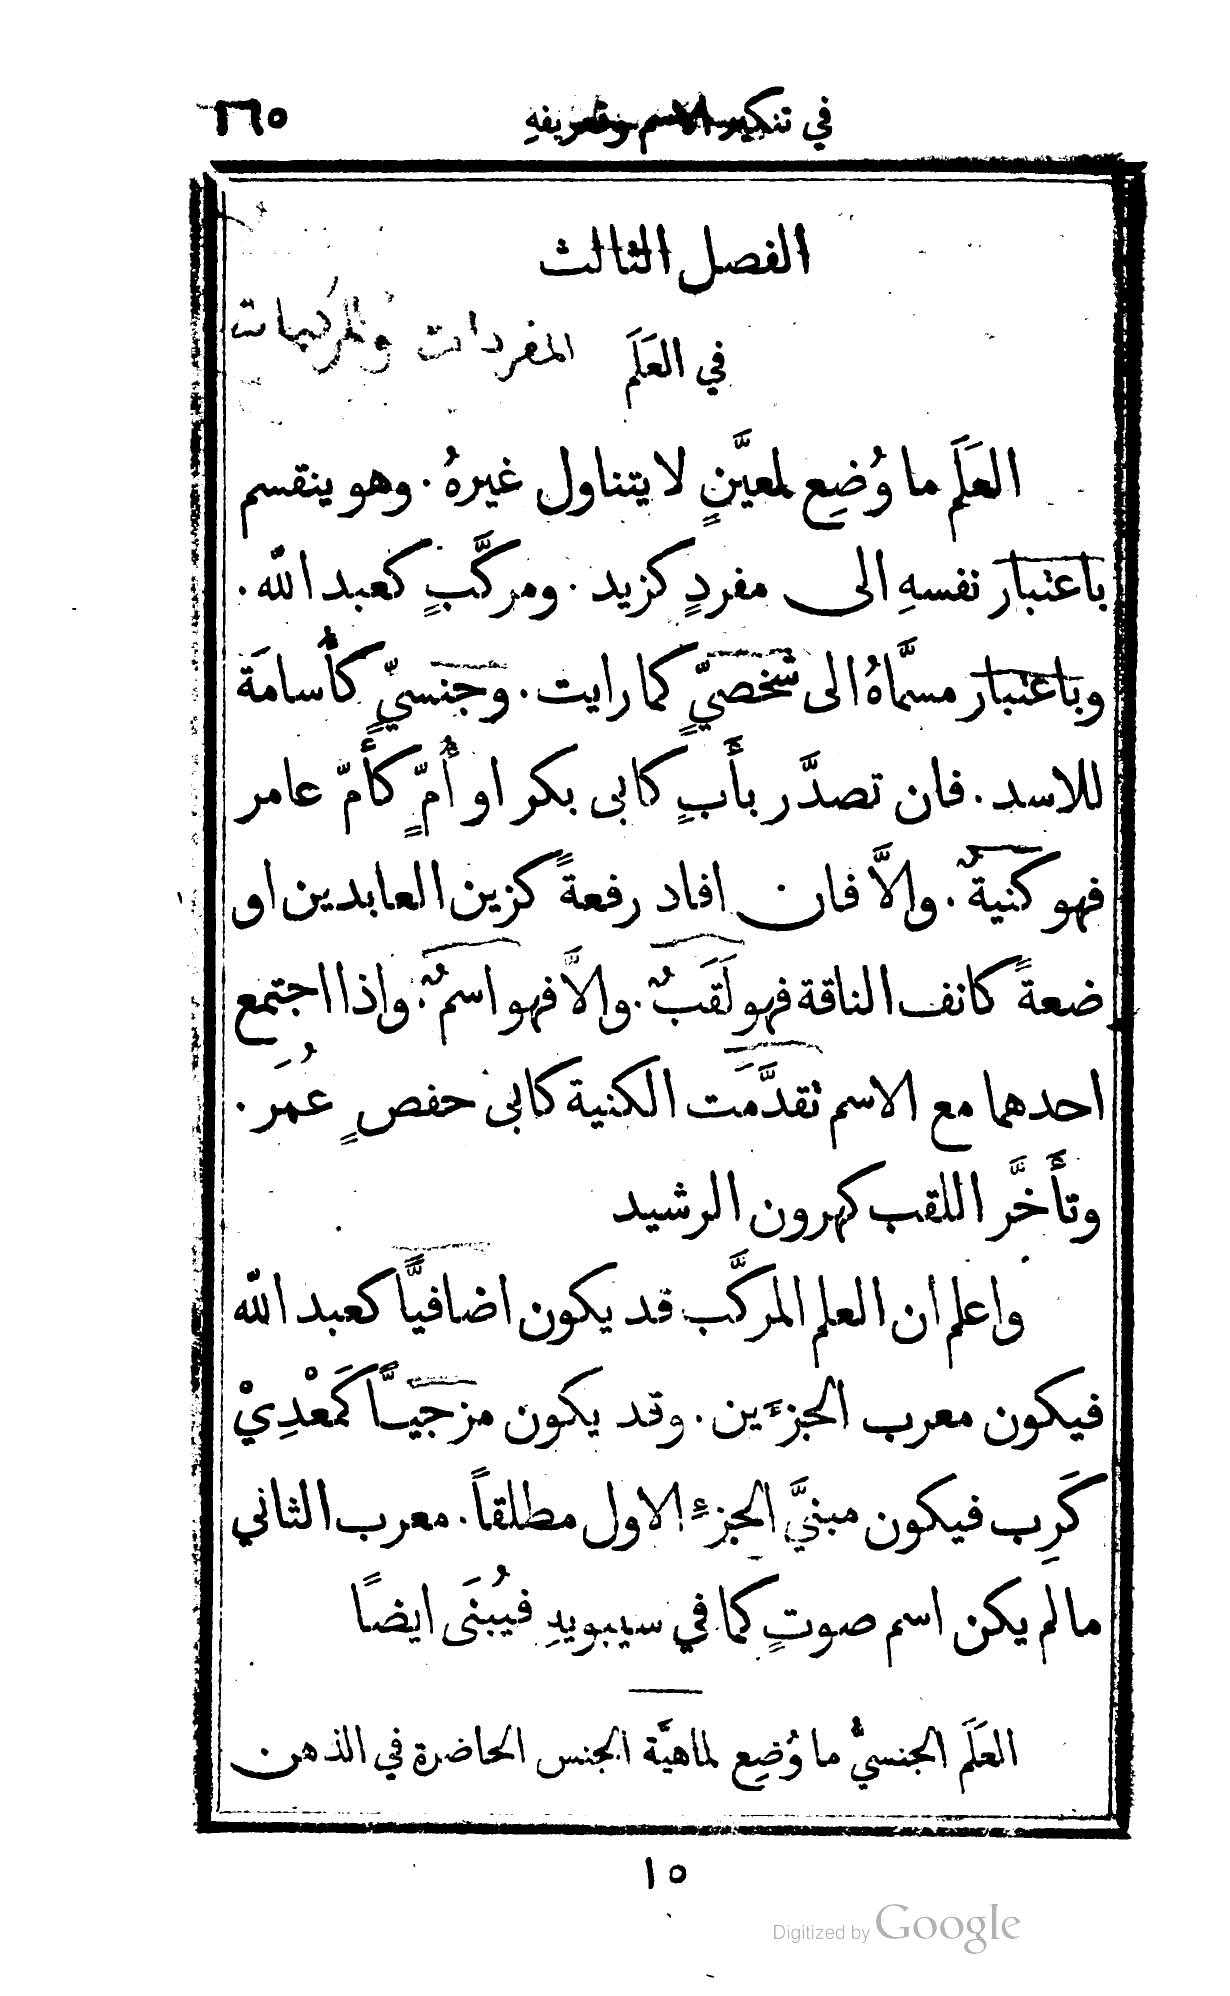 في تنكير الاسم وتعريفهِ
الفصل الثالث
في العَلَم
المفردات والمركبات
العَلَم ما وُضِع لمعيَّنٍ لا يتناول غيرهُ. وهو ينقسم
باعتبار نفسهِ الى مفردٍ كزيد. ومركَّبٍ كعبد الله.
وباعتبار مسمَّاهُ الى شخصيٍّ كما رايت. وجنسيٍّ كأُسامَة
للاسد. فان تصدَّر بأَبٍ كابي بكر او أُمٍّ كأُمّ عامر
فهو كنيةٌ. والَّا فان افاد رفعةً كزين العابدين او
ضعةً كانف الناقة فهو لَقَبٌ. والَّا فهو اسمٌ. واذا اجتمع
احدهما مع الاسم تقدَّمَت الكنية كابي حفصٍ عُمَر.
وتأَخَّر اللقب كهرون الرشيد
واعلم ان العلم المركَّب قد يكون اضافيًّا كعبد الله
فيكون معرب الجزءَين. وقد يكون مزجيًّا كَمعْدِيْ
كَرِب فيكون مبنيَّ الجزءِ الاول مطلقاً. معرب الثاني
ما لم يكن اسم صوتٍ كما في سيبويهِ فيُبنَى ايضًا
العَلَم الجنسيُّ ما وُضِع لماهيَّة الجنس الحاضرة في الذهن
١٥
Digitized by Google